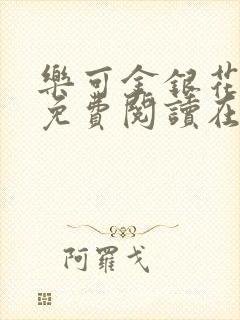 樂可金銀花
免費閱讀在
阿羅戈